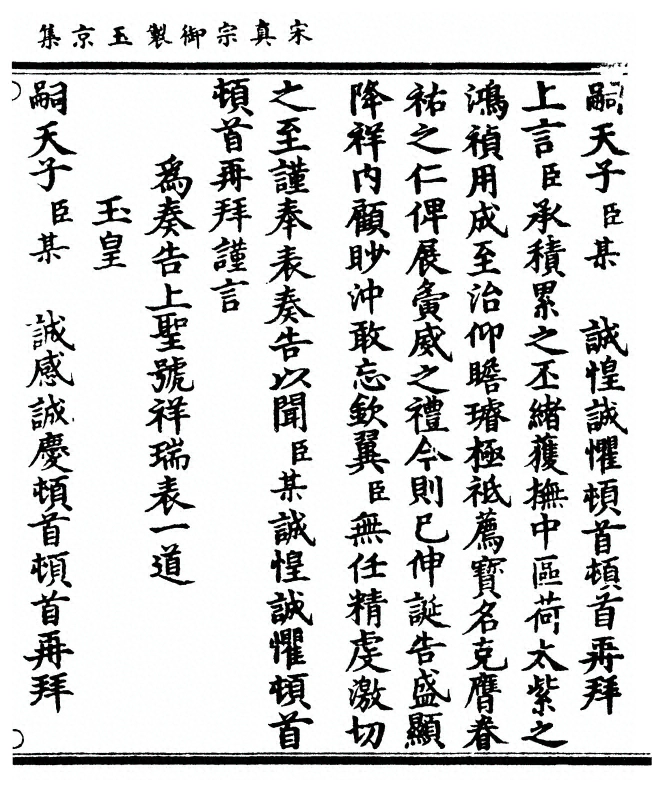 宋真宗御製玉京集
嗣天子臣某　誠惶誠懼頓首頓首再拜
上言臣承積累之丕緒獲撫中區荷太紫之
鴻禎用成至治仰瞻璿極祗薦寶名克膺眷
祐之仁俾展夤威之禮今則已伸誕告盛顯
降祥內顧眇沖敢忘欽翼臣無任精虔激切
之至謹奉表奏告以聞臣某誠惶誠懼頓首
頓首再拜謹言
為奏告上聖號祥瑞表一道
玉皇
嗣天子臣某　誠感誠慶頓首頓首再拜